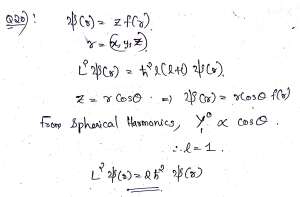 Q20) : ψ(r) = z f(r).
r = (x, y, z)
L² ψ(r) = ħ² l(l+1) ψ(r).
z = r cosθ. ⇒ ψ(r) = r cosθ f(r)
From Spherical Harmonics, Y₁⁰ ∝ cosθ.
∴ l = 1.
L² ψ(r) = 2ħ² ψ(r)